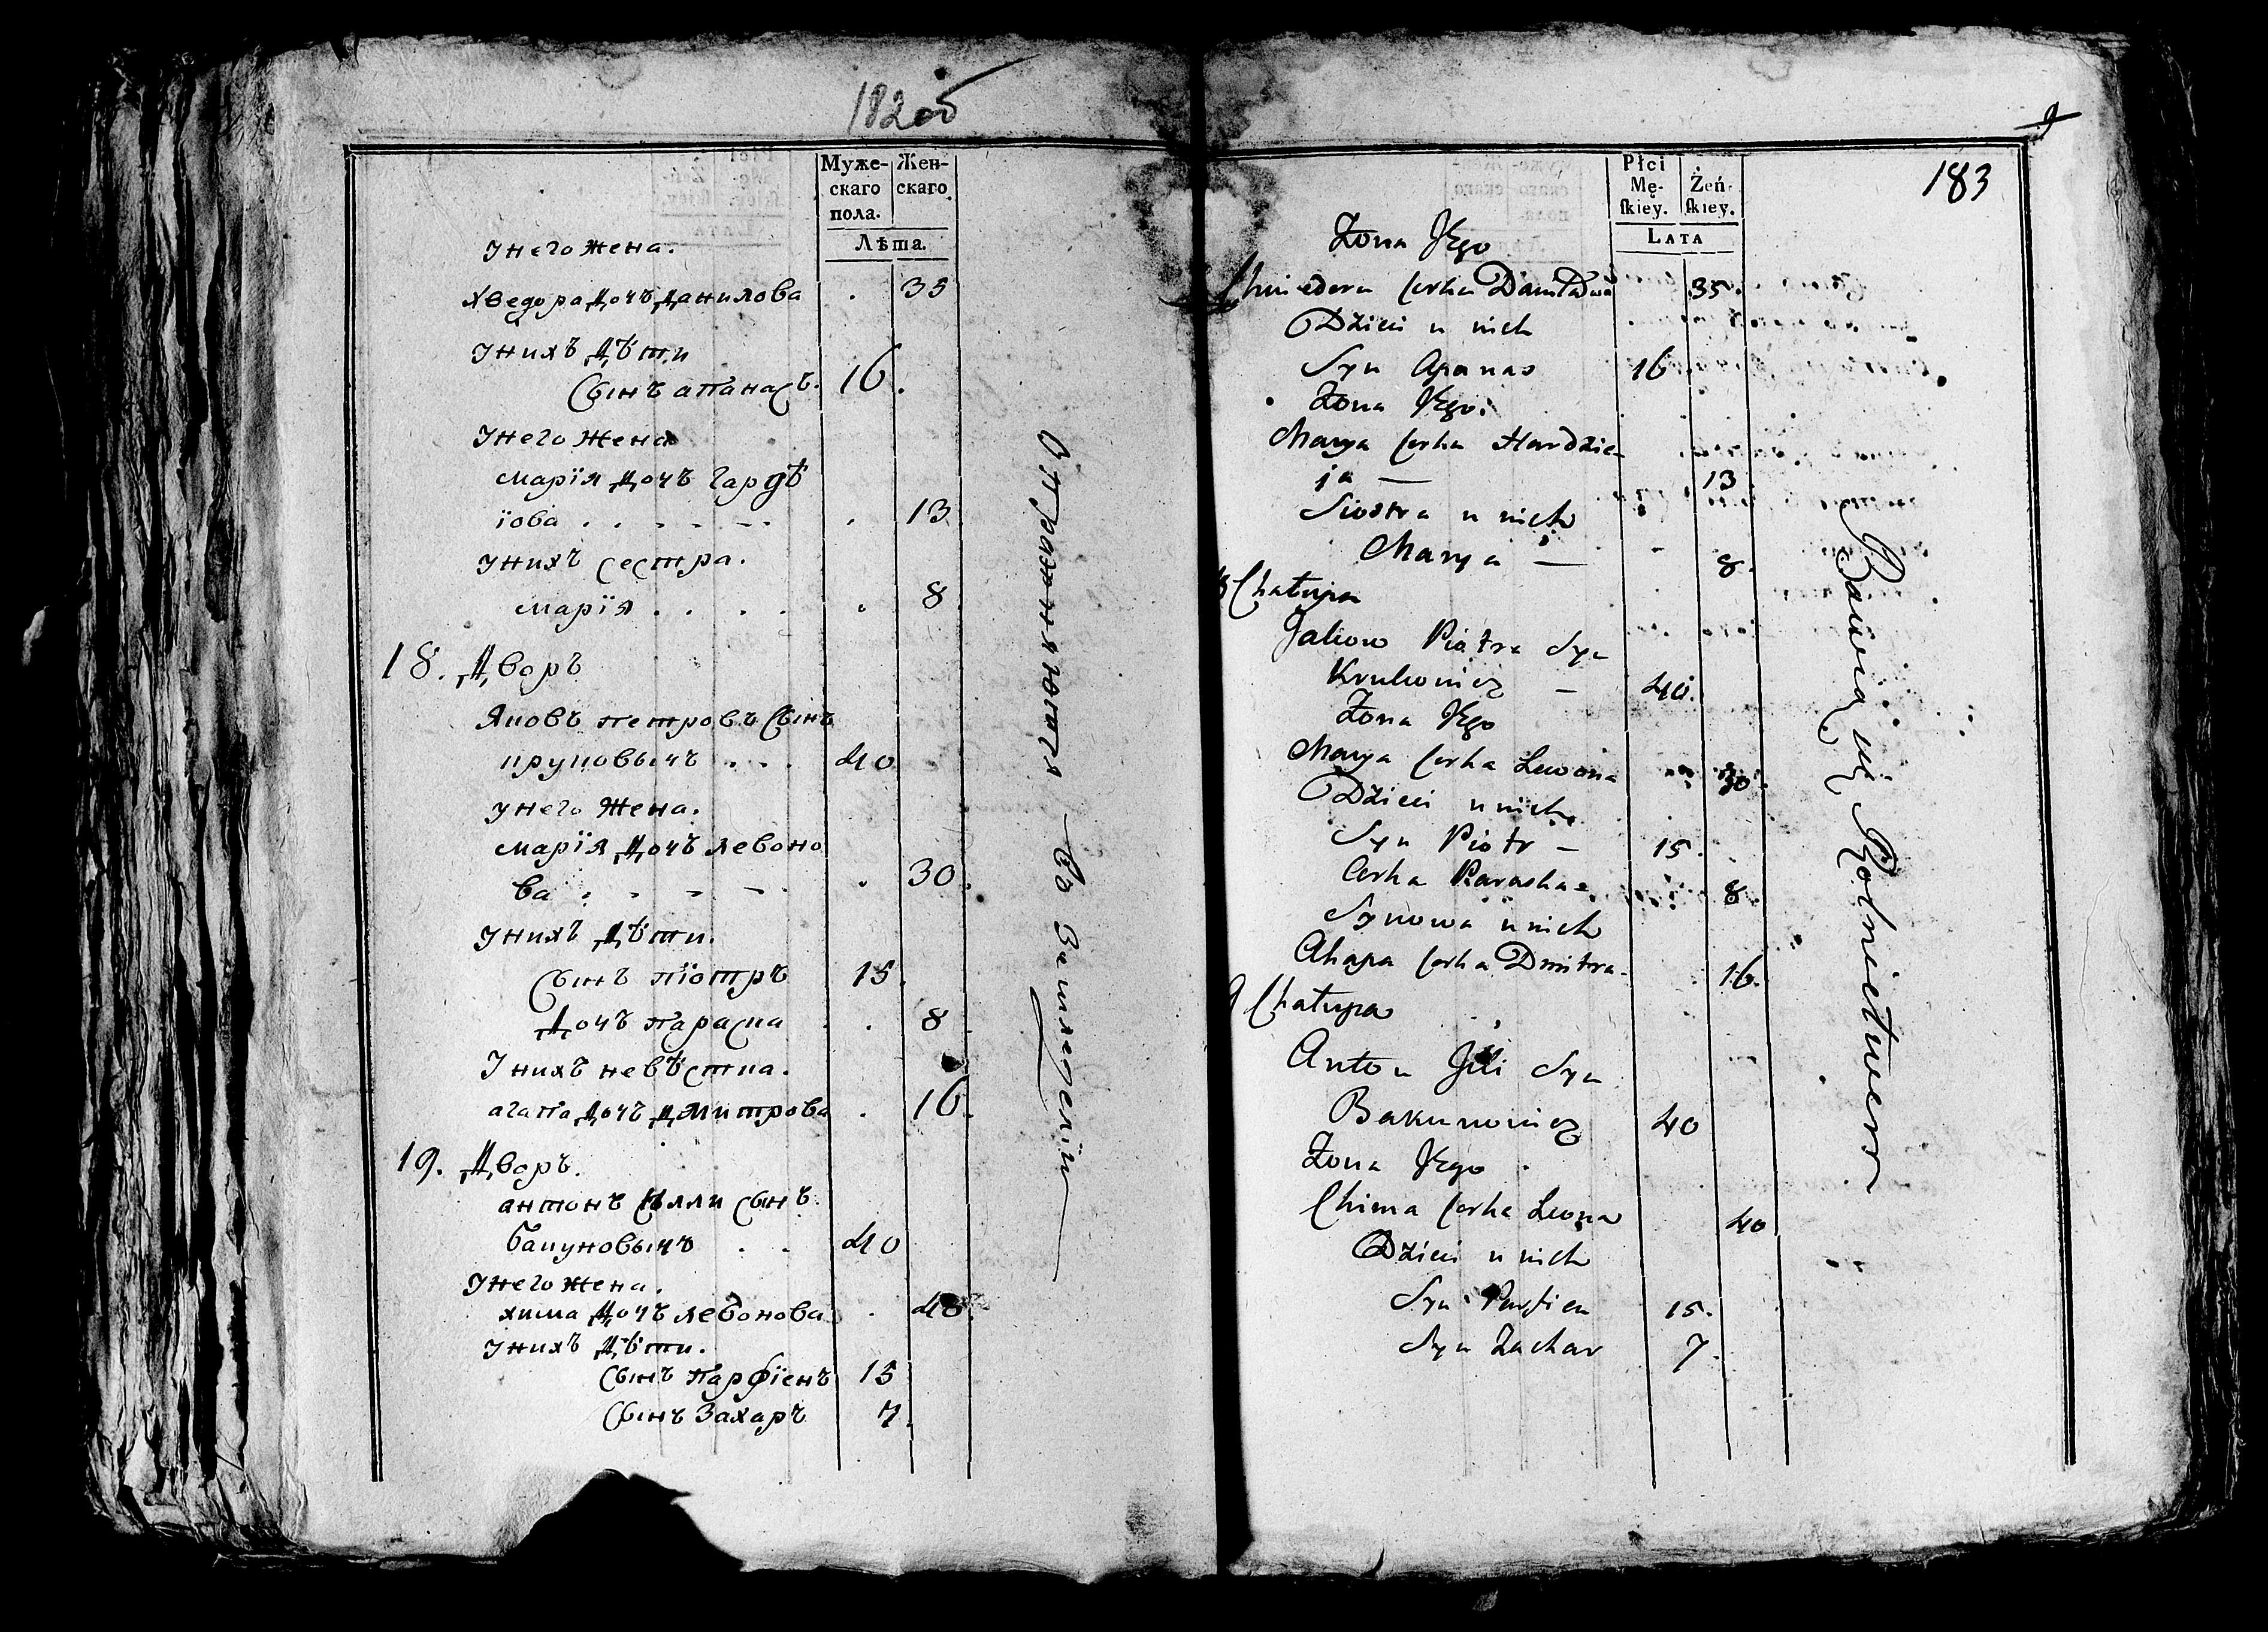 182 об
Муже-
скаго
пола.
Жен-
скаго
Лѣта.
Унего жена.
хведора дочъ данилова 35
Унихъ дѣти
Сынъ апанасъ. 16.
Унего жена
марїя дочъ гардѣ
їова 13
Унихъ сестра.
марїя 8
18. дворъ
Яковъ петровъ сынъ
круковычъ 40
Унего жена.
марїя дочъ левоно
ва 30.
Унихъ дѣти.
Сынъ пїотръ 15.
дочъ параска 8
Унихъ невѣстка.
агапа дочъ дмитрова 16.
19. дворъ.
антонъ сынъ
бакуновычъ 40
Унего жена.
хима дочъ левонова 40.
Унихъ дѣти.
Сынъ парфїенъ 15
Сынъ Захаръ 7.
Упражняются въ Земледелїи
9
183
Płci
Mę-
ſkiey.
Żeń-
ſkiey.
LATA
Żona Jego
Chwiedora Corka 35.
Dzieci u nich
Syn Apanas 16
Żona Jego.
Marya Corka Hardzie
ja — 13
Siostra u nich
Marya — 8.
8 Chałupa
Jakow Piotra Syn
Krukowicz — 40.
Żona Jego
Marya Corka Lewona 30.
Dzieci u nich
Syn Piotr — 15.
Corka Paraska 8.
Synowa u nich
Ahapa Corka Dmitra 16.
9 Chałupa
Anton Syn
Bakunowicz 40
Żona Jego
Chima Corka Leona 40
Dzieci u nich
Syn Parfien 15.
Syn Zachar 7.
Bawią się Rolnictwem